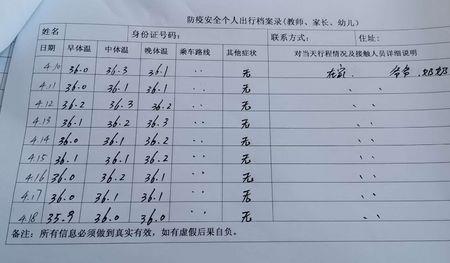 防疫安全个人出行档案录(教师、家长、幼儿)
姓名 身份证号码: 联系方式: 住址:
日期 早体温 中体温 晚体温 乘车路线 其他症状 对当天行程情况及接触人员详细说明
4.10 36.0 36.3 36.1 ·· 无 在家 爷爷 奶奶
4.11 36.0 36.1 36.1 ·· 无 ··
4.12 36.2 36.3 36.2 ·· 无 ··
4.13 36.1 36.2 36.3 ·· 无 ··
4.14 36.0 36.1 36.2 ·· 无 ··
4.15 36.1 36.1 36.2 ·· 无 ··
4.16 36.0 36.2 36.1 ·· 无 ··
4.17 36.0 36.1 36.1 ·· 无 ··
4.18 35.9 36.0 36.0 ·· 无 ··
备注:所有信息必须做到真实有效,如有虚假后果自负。